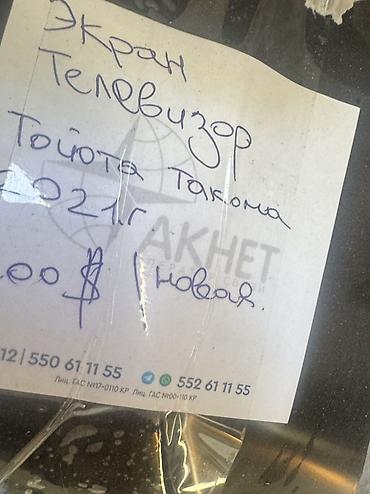 Экран
Телевизор
Тойота Такома
2021г.
00$ / новая.
АКНЕТ
12 | 550 61 11 55
552 61 11 55
Лиц. ГАС №17-0110 КР Лиц. ГАС №00-110 КР